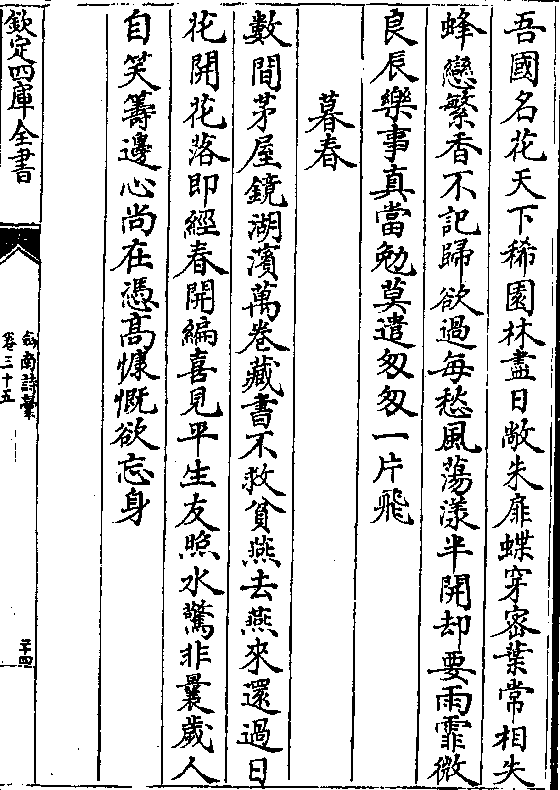 吾國名花天下稀園林盡日敞朱扉蝶穿密葉常相失
蜂戀繁香不記歸欲過每愁風蕩漾半開却要雨霏微
良辰樂事真當勉莫遣匆匆一片飛
暮春
數間茅屋鏡湖濱萬卷藏書不救貧燕去燕來還過日
花開花落即經春開編喜見平生友照水驚非曩歲人
自笑籌邊心尚在憑高慷慨欲忘身
欽定四庫全書
劍南詩稾
卷三十五
二十四